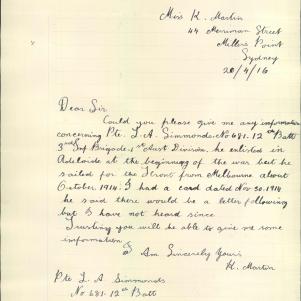 Miss K. Martin
44 Merriman Street
Millers Point
Sydney
20/4/16
Dear Sir
Could you please give me any information
concerning Pte. L. A. Simmonds. No 681. 12th Batt
3rd Inf Brigade, 1st Aust Division, he enlisted in
Adelaide at the beginning of the war but he
sailed for the Front from Melbourne about
October. 1914. I had a card dated Nov 30. 1914
he said there would be a letter following
but I have not heard since
Trusting you will be able to give me some
information
I Am Sincerely Yours
K. Martin
Pte L. A. Simmonds
No 681. 12th Batt